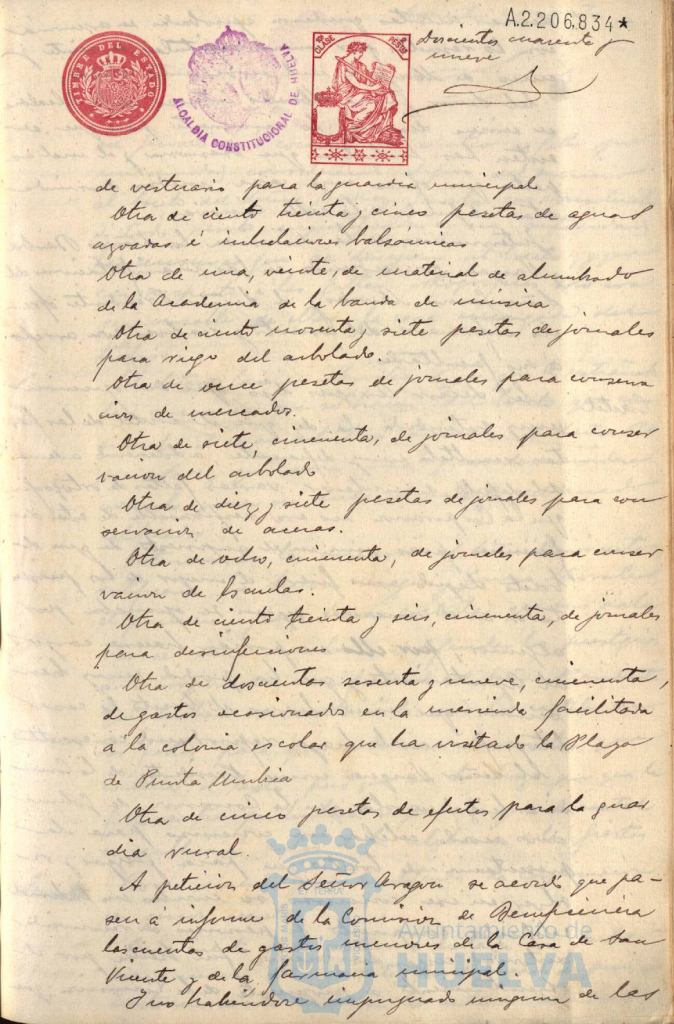 A.2.206.834*
TIMBRE DEL ESTADO
ALCALDIA CONSTITUCIONAL DE HUELVA
CLASE
PESETAS
Doscientos cuarenta y
nueve
de vestuario para la guardia municipal
Otra de ciento treinta y cinco pesetas de aguas
azoadas é inhalaciones balsámicas
Otra de una, veinte, de material de alumbrado
de la Academia de la banda de música
Otra de ciento noventa y siete pesetas de jornales
para riego del arbolado.
Otra de once pesetas de jornales para conserva
cion de mercados.
Otra de siete, cincuenta, de jornales para conser
vacion del arbolado
Otra de diez y siete pesetas de jornales para con
servacion de aceras.
Otra de ocho, cincuenta, de jornales para conser
vacion de Escuelas.
Otra de ciento treinta y seis, cincuenta, de jornales
para desinfecciones
Otra de doscientas sesenta y nueve, cincuenta,
de gastos ocasionados en la merienda facilitada
á la colonia escolar que ha visitado la Playa
de Punta Umbria
Otra de cinco pesetas de efectos para la guar
dia rural.
A peticion del Señor Aragon se acordó que pa-
sen á informe de la Comision de Beneficencia
las cuentas de gastos menores de la Casa de San
Vicente y de la farmacia municipal.
Y no habiéndose impugnado ninguna de las
Ayuntamiento de
HUELVA